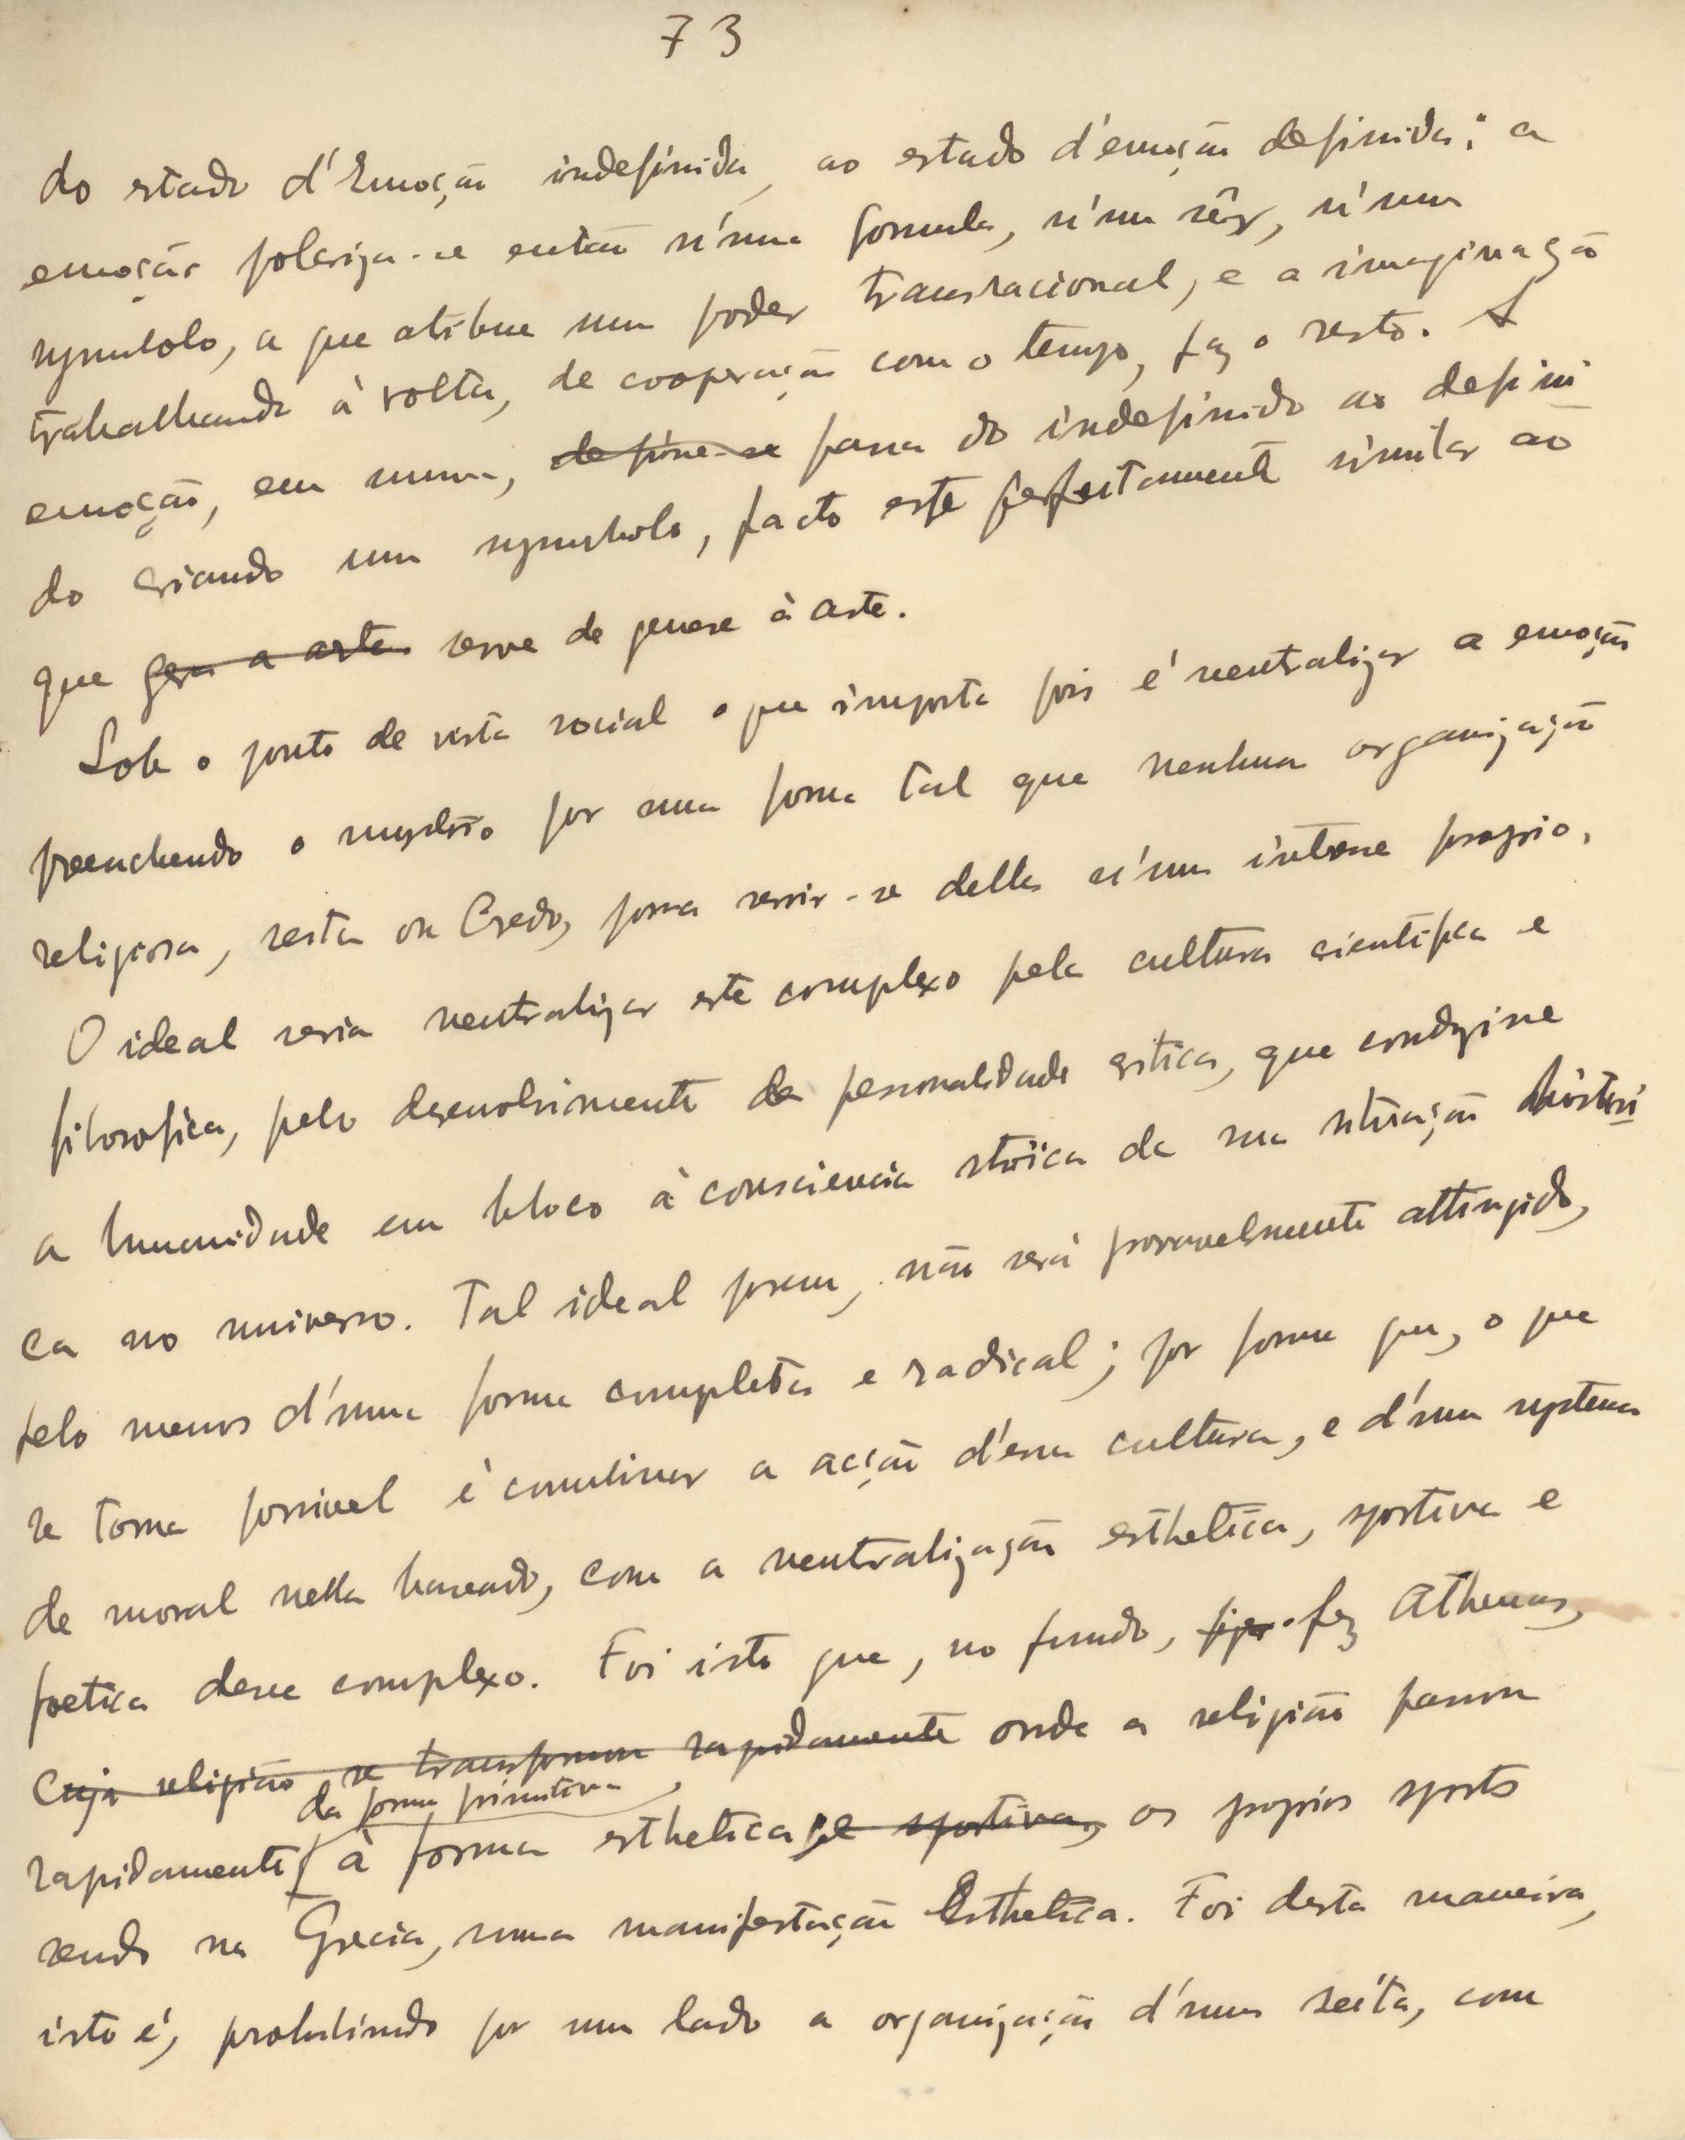 73
do estado d'Emoção indefinida, ao estado d'emoção definida; a
emoção polariza-se então n'uma formula, n'um sêr, n'um
symbolo, a que atribue um poder transracional, e a imaginação
trabalhando à volta, de cooperação com o tempo, faz o resto. A
emoção, em summa, define-se passa do indefinido ao defini
do criando um symbolo, facto este perfeitamente similar ao
que gera a arte serve de genese à arte.
Sob o ponto de vista social o que importa pois é neutralizar a emoção
preenchendo o mysterio por uma forma tal que nenhuma organização
religiosa, seita ou Credo, possa servir-se della n'um intesse proprio.
O ideal seria neutralizar este complexo pela cultura cientifica e
filosofica, pelo desenvolvimento da personalidade critica, que conduzisse
a humanidade em bloco à consciencia stoïca da sua situação histori
ca no universo. Tal ideal porem, não será provavelmente attingido,
pelo menos d'uma forma completa e radical; por forma que, o que
se torna possivel é combinar a acção d'essa cultura, e d'um systema
de moral nella baseado, com a neutralização esthetica, sportiva e
poetica desse complexo. Foi isto que, no fundo, fez Athenas,
cuja religião se transformou rapidamente onde a religião passou
da forma primitiva,
rapidamente à forma esthetica e sportiva, os proprios sports
sendo na Grecia, uma manifestação Esthetica. Foi desta maneira,
isto é, prohibindo por um lado a organização d'uma seita, com